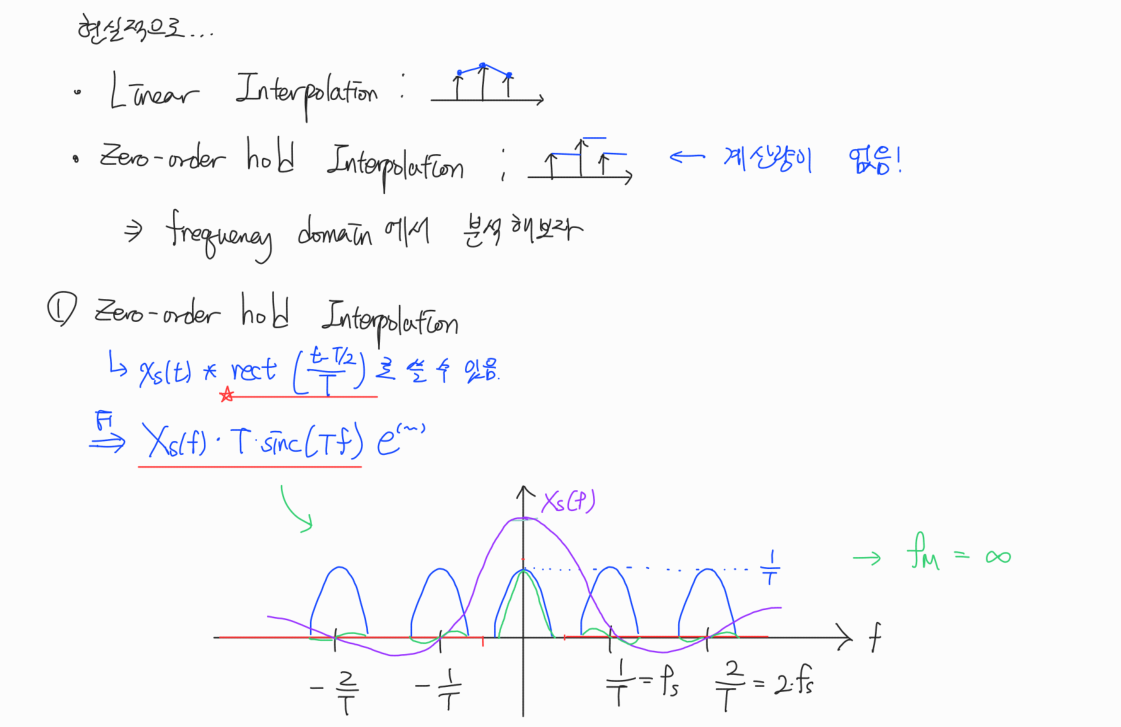 현실적으로...
• Linear Interpolation :
• Zero-order hold Interpolation ; ← 계산량이 없음!
⇒ frequency domain 에서 분석해보자
① Zero-order hold Interpolation
↳ xs(t) * rect (t-T/2 / T) 로 쓸 수 있음.
F ⇒ Xs(f) · T · sinc(Tf) e^(~)
Xs(f)
1/T
→ fM = ∞
f
-2/T -1/T 1/T = fs 2/T = 2·fs